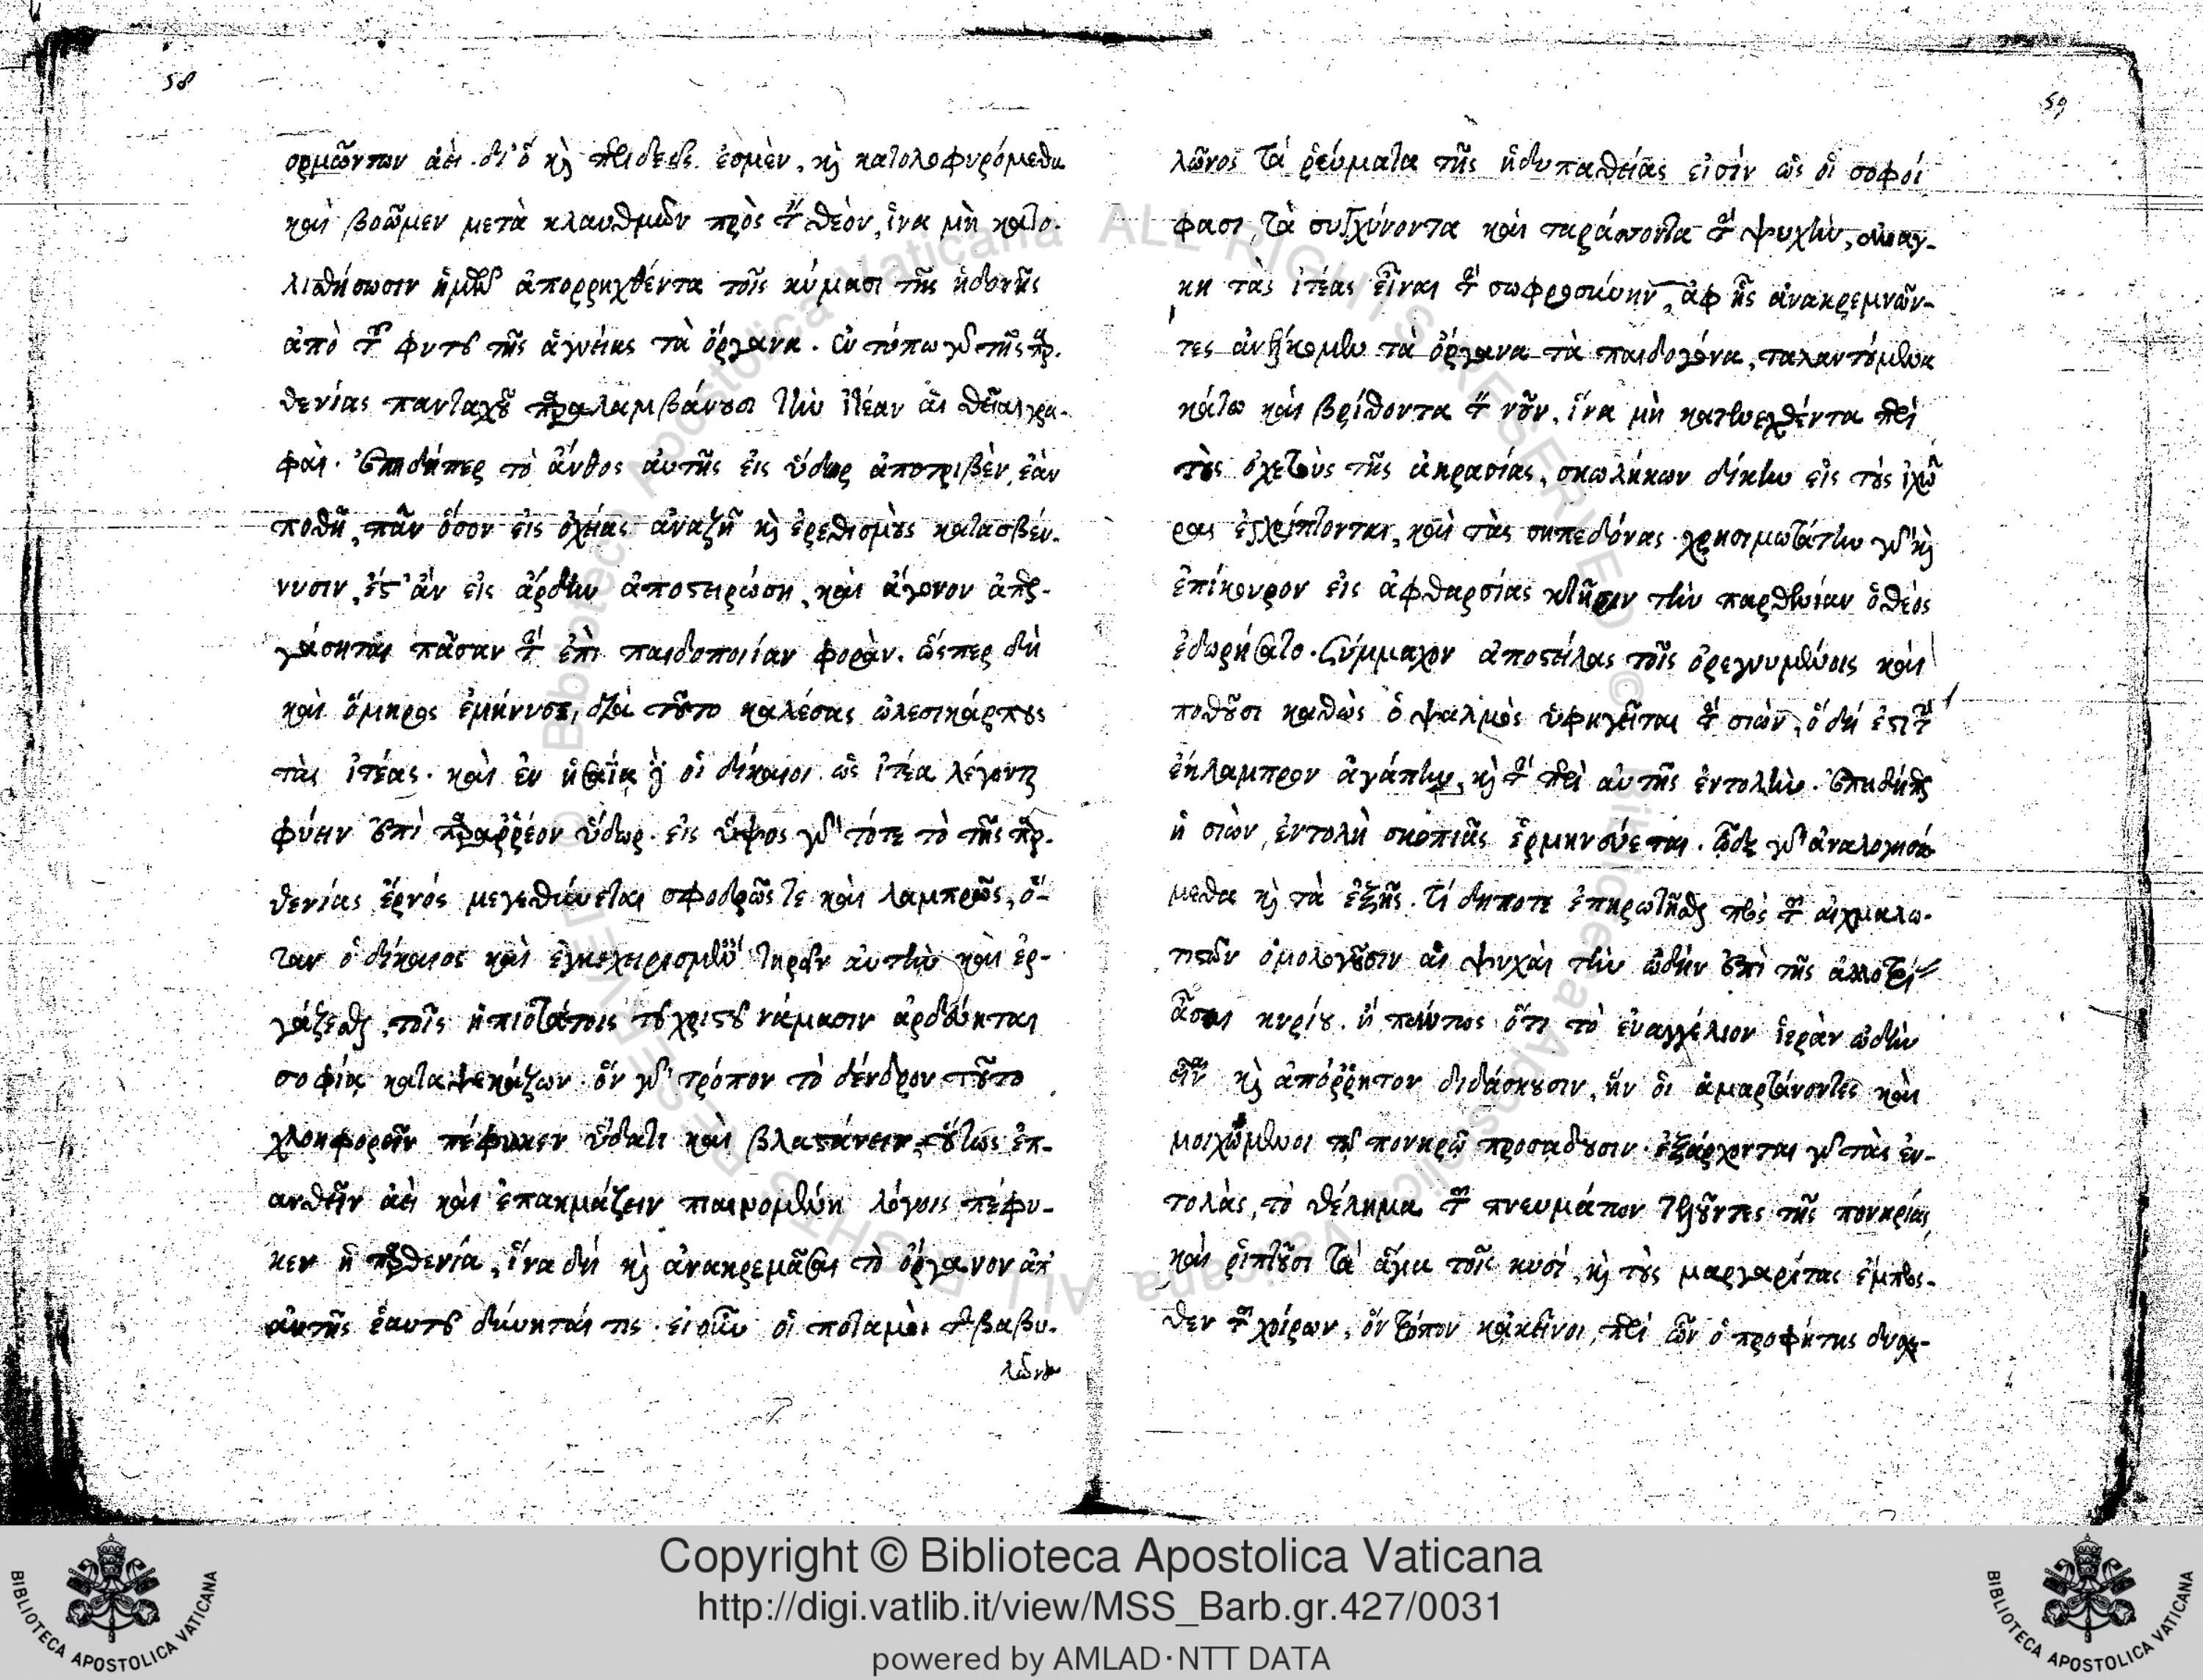 58
ορμώντων ἀεί. δι' ὃ κ̀ περιδεεῖς ἐσμὲν, κ̀ κατολοφυρόμεθα
καὶ βοῶμεν μετὰ κλαυθμῶν πρὸς τ θεὸν, ἵνα μὴ κατο-
λισθήσωσιν ἡμῶν ἀπορριχθέντα τοῖς κύμασι τῆς ἡδονῆς
ἀπὸ τ φυτοῦ τῆς ἁγνείας τὰ ὄργανα. ἐν τύπῳ γὰρ τῆς παρ-
θενίας πανταχοῦ παραλαμβάνουσι τὴν ἰτέαν αἱ θεῖαι γρα-
φαὶ. ἐπειδήπερ τὸ ἄνθος αὐτῆς εἰς ὕδωρ ἀποτριβὲν, ἐὰν
ποθῇ, πᾶν ὅσον εἰς ὀχείας ἀναζῇ κ̀ ἐρεθισμοὺς κατασβέν-
νυσιν, ἔστ' ἂν εἰς ἄρδην ἀποστειρώσῃ, καὶ ἄγονον ἀπερ-
γάσηται πᾶσαν τ ἐπὶ παιδοποιίαν φοράν. ὥσπερ δὴ
καὶ ὅμηρος ἐμήνυσε, διὰ τοῦτο καλέσας ὠλεσικάρπους
τὰς ἰτέας. καὶ ἐν ἡσαΐᾳ δὲ οἱ δίκαιοι ὡς ἰτέα λέγονται
φύειν ἐπὶ παραρρέον ὕδωρ. εἰς ὕψος γὰρ τότε τὸ τῆς παρ-
θενίας ἔρνος μεγεθύνεται σφοδρῶς τε καὶ λαμπρῶς, ὅ-
ταν ὁ δίκαιος καὶ ἐγκεχειρισμένος τηρεῖν αὐτὴν καὶ ἐρ-
γάζεσθαι, τοῖς ἠπιωτάτοις τοῦ χριστοῦ νάμασιν ἀρδεύηται
σοφίᾳ καταψεκάζων. ὃν γὰρ τρόπον τὸ δένδρον τοῦτο
χλοηφορεῖν πέφυκεν ὕδατι καὶ βλαστάνειν, οὕτως ἐπ-
ανθεῖν ἀεὶ καὶ ἐπακμάζειν πιαινομένη λόγοις πέφυ-
κεν ἡ παρθενία, ἵνα δὴ κ̀ ἀνακρεμᾶσαι τὸ ὄργανον ἀπ'
αὐτῆς ἑαυτοῦ δύνηταί τις. εἰ οὖν οἱ ποταμοὶ τ βαβυ-
λῶνος
59
λῶνος τὰ ῥεύματα τῆς ἡδυπαθείας εἰσὶν ὡς οἱ σοφοί
φασι, τὰ συγχύνοντα καὶ ταράσσοντα τ ψυχὴν, ἀνάγ-
κη τὰς ἰτέας εἶναι τ σωφροσύνην, ἀφ' ἧς ἀνακρεμνῶν-
τες ἀνέλκομεν τὰ ὄργανα τὰ παιδογόνα, ταλαντεύμενα
κάτω καὶ βρίθοντα τ νοῦν, ἵνα μὴ κατενεχθέντα περὶ
τοὺς ὀχετοὺς τῆς ἀκρασίας, σκωλήκων δίκην εἰς τοὺς ἰχῶ
ρας ἐγχρίπτονται, καὶ τὰς σηπεδόνας. χρησιμωτάτην γὰρ κ̀
ἐπίκουρον εἰς ἀφθαρσίας κτῆσιν τὴν παρθενίαν ὁ θεὸς
ἐδωρήσατο. σύμμαχον ἀποστείλας τοῖς ὀρεγνυμένοις καὶ
ποθοῦσι καθὼς ὁ ψαλμὸς ὑφηγεῖται τ σιὼν, ὃ δή ἐστι τ
ἔκλαμπρον ἀγάπην, κ̀ τ περὶ αὐτῆς ἐντολὴν. ἐπειδήπερ
ἡ σιὼν, ἐντολὴ σκοπιᾶς ἑρμηνεύεται. ὧδε γὰρ ἀναλογισώ
μεθα κ̀ τὰ ἑξῆς. τί δήποτε ἐπηρωτῆσθαι πρὸς τ αἰχμαλω-
τισῶν ὁμολογοῦσιν αἱ ψυχαὶ τὴν ᾠδὴν ἐπὶ τῆς ἀλλοτρί
ᾆσαι κυρίου. ἢ πάντως ὅτι τὸ εὐαγγέλιον ἱερὰν ᾠδὴν
τιν κ̀ ἀπόρρητον διδάσκουσιν, ἣν οἱ ἁμαρτάνοντες καὶ
μοιχώμενοι τῷ πονηρῷ προσᾴδουσιν. ἐξάρχονται γὰρ τὰς ἐν-
τολὰς, τὸ θέλημα τ πνευμάτων τελοῦντες τῆς πονηρίας,
καὶ ῥιπτοῦσι τὰ ἅγια τοῖς κυσί, κ̀ τοὺς μαργαρίτας ἔμπρος-
θεν τ χοίρων, ὃν τρόπον κἀκεῖνοι, περὶ ὧν ὁ προφήτης δυσχε-
Copyright © Biblioteca Apostolica Vaticana
http://digi.vatlib.it/view/MSS_Barb.gr.427/0031
powered by AMLAD·NTT DATA
BIBLIOTECA APOSTOLICA VATICANA
BIBLIOTECA APOSTOLICA VATICANA